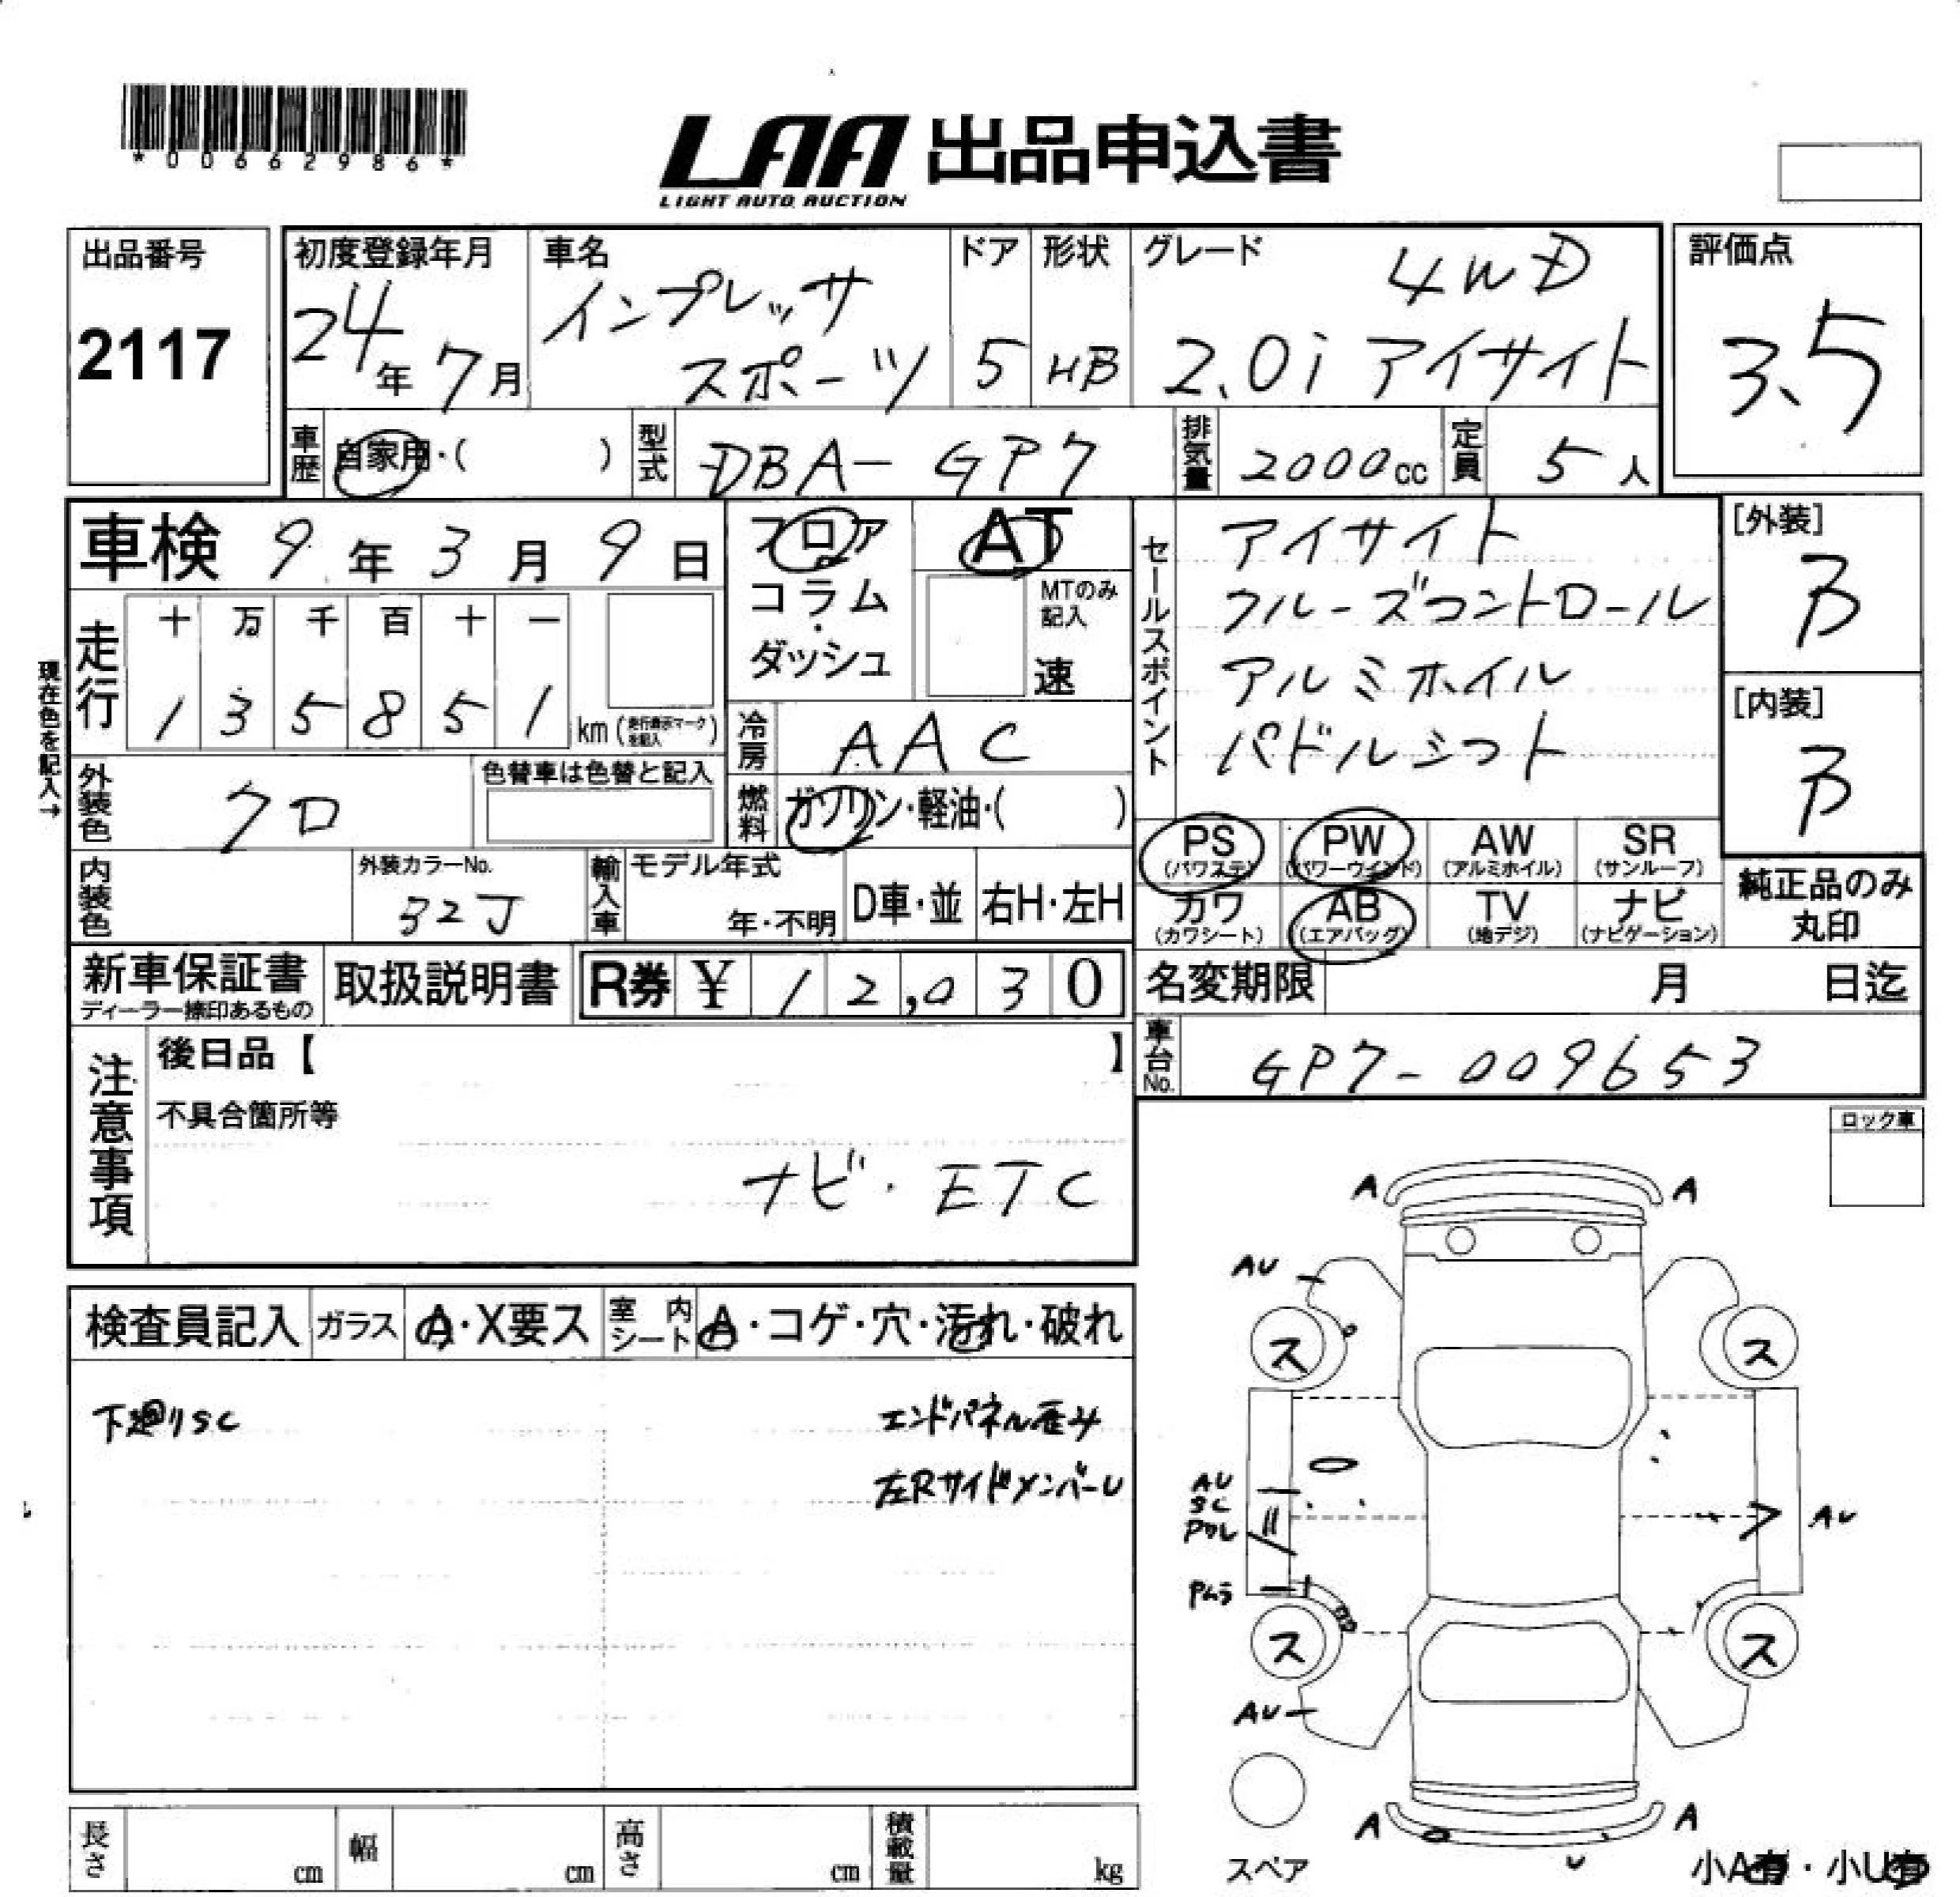 *00662986*
LAA 出品申込書
LIGHT AUTO AUCTION
出品番号
2117
初度登録年月
24年 7月
車名
インプレッサ
スポーツ
ドア
5
形状
HB
グレード
4WD
2.0i アイサイト
評価点
3.5
車歴
自家用・( )
型式
DBA-GP7
排気量
2000cc
定員
5人
車検 9年 3月 9日
フロア
コラム
・
ダッシュ
AT
MTのみ
記入
速
セールスポイント
アイサイト
クルーズコントロール
アルミホイル
パドルシフト
[外装]
B
[内装]
B
現在色を記入→
走行
十 万 千 百 十 一
1 3 5 8 5 1 km (走行表示マークを記入)
冷房
AAC
外装色
クロ
色替車は色替と記入
燃料
ガソリン・軽油・( )
PS
(パワステ)
PW
(パワーウインド)
AW
(アルミホイル)
SR
(サンルーフ)
カワ
(カワシート)
AB
(エアバッグ)
TV
(地デジ)
ナビ
(ナビゲーション)
純正品のみ
丸印
内装色
外装カラーNo.
32J
輸入車
モデル年式
年・不明
D車・並
右H・左H
新車保証書
ディーラー捺印あるもの
取扱説明書
R券 ¥ 1 2,0 3 0
名変期限 月 日迄
車台No.
GP7-009653
注意事項
後日品【 】
不具合箇所等
ナビ・ETC
ロック車
検査員記入
ガラス
A・X要ス
室内
シート
A・コゲ・穴・汚れ・破れ
下廻りSC
エンドパネル歪み
左RサイドメンバーU
A
A
AU
ス
ス
AU
SC
Pワレ
AU
Pムラ
ス
ス
AU
A
A
U
スペア
小A有・小U有
長さ cm
幅 cm
高さ cm
積載量 kg